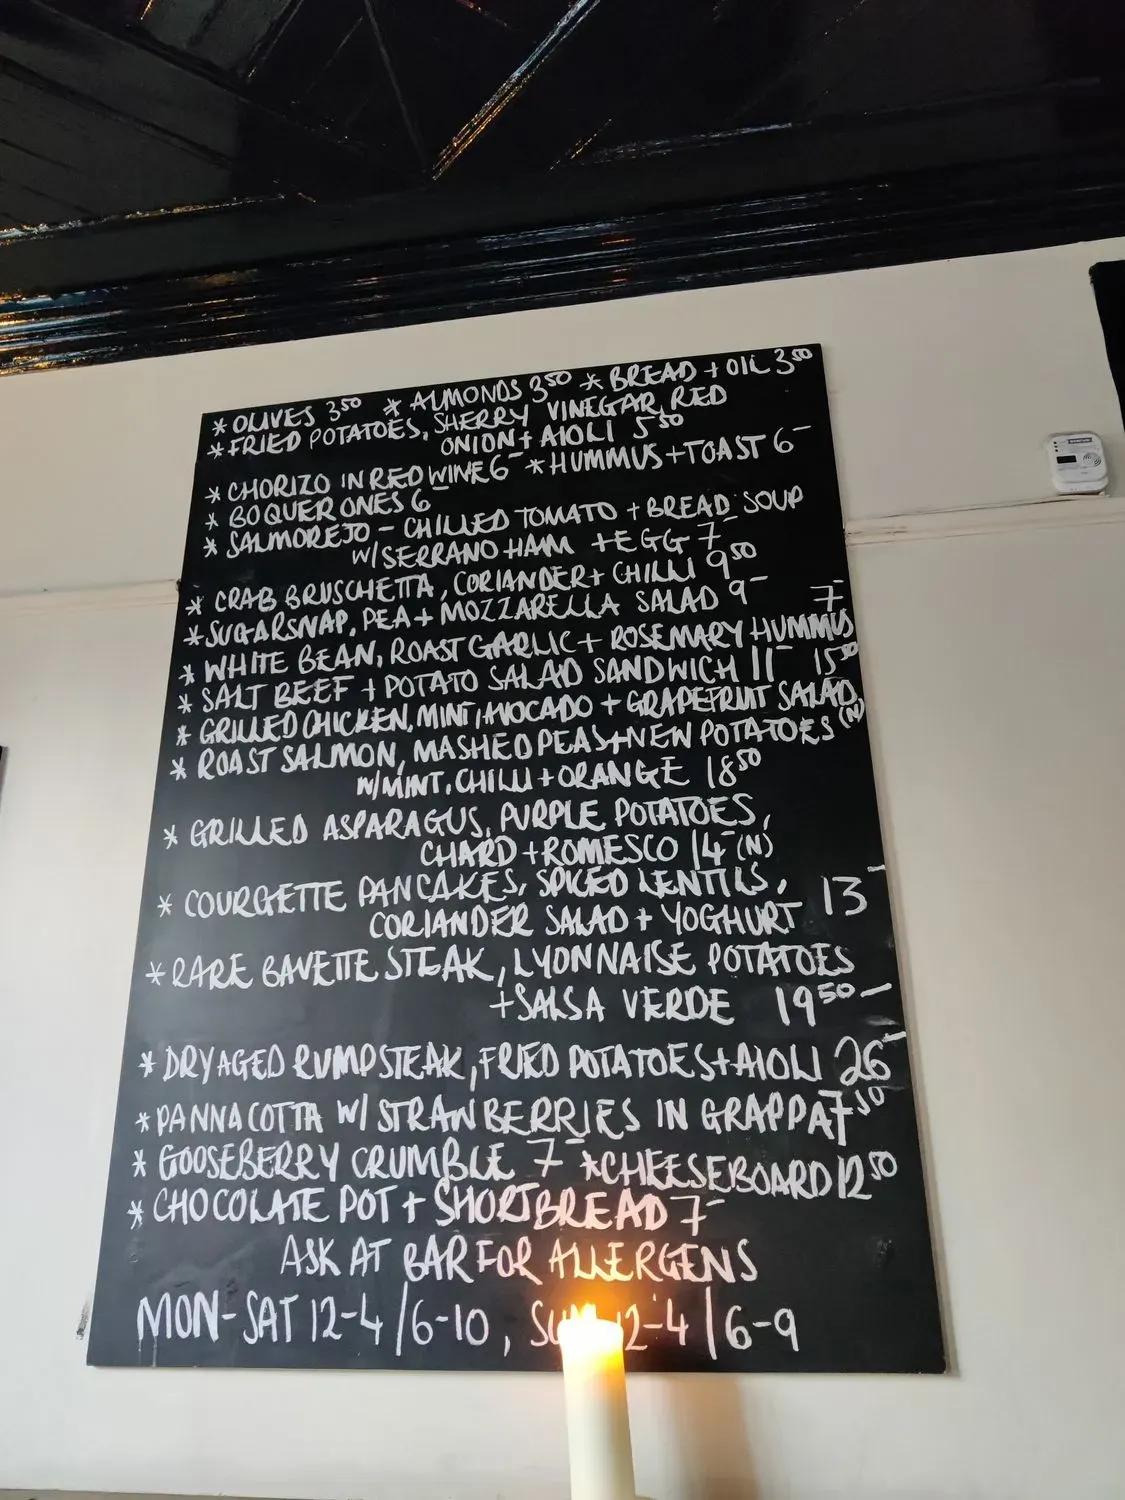 * OLIVES 3.50 * ALMONDS 3.50 * BREAD + OIL 3.50
* FRIED POTATOES, SHERRY VINEGAR, RED
ONION + AIOLI 5.50
* CHORIZO IN RED WINE 6- * HUMMUS + TOAST 6-
* BOQUERONES 6
* SALMOREJO - CHILLED TOMATO + BREAD SOUP
W/ SERRANO HAM + EGG 7-
* CRAB BRUSCHETTA, CORIANDER + CHILLI 9.50
* SUGARSNAP, PEA + MOZZARELLA SALAD 9-
* WHITE BEAN, ROAST GARLIC + ROSEMARY HUMMUS 7-
* SALT BEEF + POTATO SALAD SANDWICH 11-
* GRILLED CHICKEN, MINT, AVOCADO + GRAPEFRUIT SALAD 15.50
* ROAST SALMON, MASHED PEAS + NEW POTATOES (N)
W/ MINT, CHILLI + ORANGE 18.50
* GRILLED ASPARAGUS, PURPLE POTATOES,
CHARD + ROMESCO 14- (N)
* COURGETTE PANCAKES, SPICED LENTILS, 13-
CORIANDER SALAD + YOGHURT
* RARE BAVETTE STEAK, LYONNAISE POTATOES
+ SALSA VERDE 19.50-
* DRY AGED RUMP STEAK, FRIED POTATOES + AIOLI 26-
* PANNA COTTA W/ STRAWBERRIES IN GRAPPA 7.50
* GOOSEBERRY CRUMBLE 7- * CHEESEBOARD 12.50
* CHOCOLATE POT + SHORTBREAD 7-
ASK AT BAR FOR ALLERGENS
MON-SAT 12-4 / 6-10, SUN 12-4 / 6-9